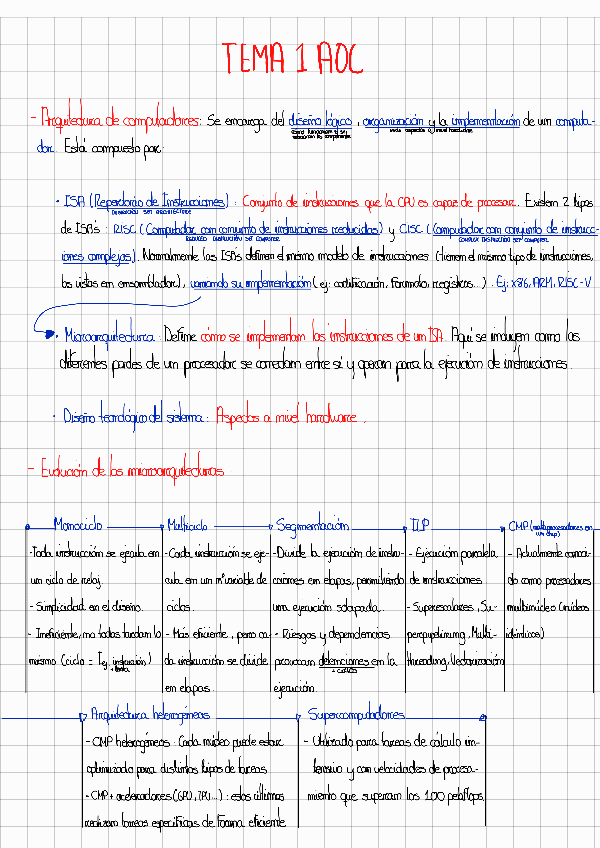 TEMA 1 AOC
- Arquitectura de computadores: Se encarga del diseño lógico, organización y la implementación de un computa-
dor. Está compuesto por:
· ISA (Repertorio de Instrucciones): Conjunto de instrucciones que la CPU es capaz de procesar. Existen 2 tipos
de ISAs: RISC (Computador con conjunto de instrucciones reducidas) y CISC (Computador con conjunto de instrucc-
iones complejas). Normalmente las ISAs definen el mismo modelo de instrucciones (tienen el mismo tipo de instrucciones,
las vistas en ensamblador), variando su implementación (ej: codificación, formato, registros...). Ej: x86, ARM, RISC-V
· Microarquitectura: Define cómo se implementan las instrucciones de un ISA. Aquí se incluyen como las
diferentes partes de un procesador se conectan entre sí y operan para la ejecución de instrucciones.
· Diseño tecnológico del sistema: Aspectos a nivel hardware.
- Evolución de las microarquitecturas
Monociclo Multiciclo Segmentación ILP CMP (multiprocesadores en
un chip)
- Toda instrucción se ejecuta en
un ciclo de reloj.
- Simplicidad en el diseño.
- Ineficiente, no todas tardan lo
mismo (ciclo = T ej. instrucción
+ lenta)
- Cada instrucción se eje-
cuta en un nº variable de
ciclos.
- Más eficiente, pero ca-
da instrucción se divide
en etapas.
- Divide la ejecución de instru-
cciones en etapas, permitiendo
una ejecución solapada.
- Riesgos y dependencias
provocan detenciones en la
+ ciclos
ejecución.
- Ejecución paralela
de instrucciones.
- Superescalares, Su-
perpipelining, Multi-
threading, Vectorización
- Actualmente conoci-
do como procesadores
multinúcleo (núcleos
idénticos)
Arquitectura heterogéneas Supercomputadores
- CMP heterogéneos: Cada núcleo puede estar
optimizado para distintos tipos de tareas
- CMP + aceleradores (GPU, TPU...): estos últimos
realizan tareas específicas de forma eficiente
- Utilizado para tareas de cálculo in-
tensivo y con velocidades de procesa-
miento que superan los 100 petaflops.